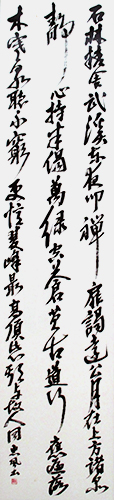 石林精舍武溪东夜叩禅扉谒远公月在上方诸品
静心持半偈万缘空苍苔古道行应遍落
木寒泉听不穷更忆双峰最高顶此心期与故人同